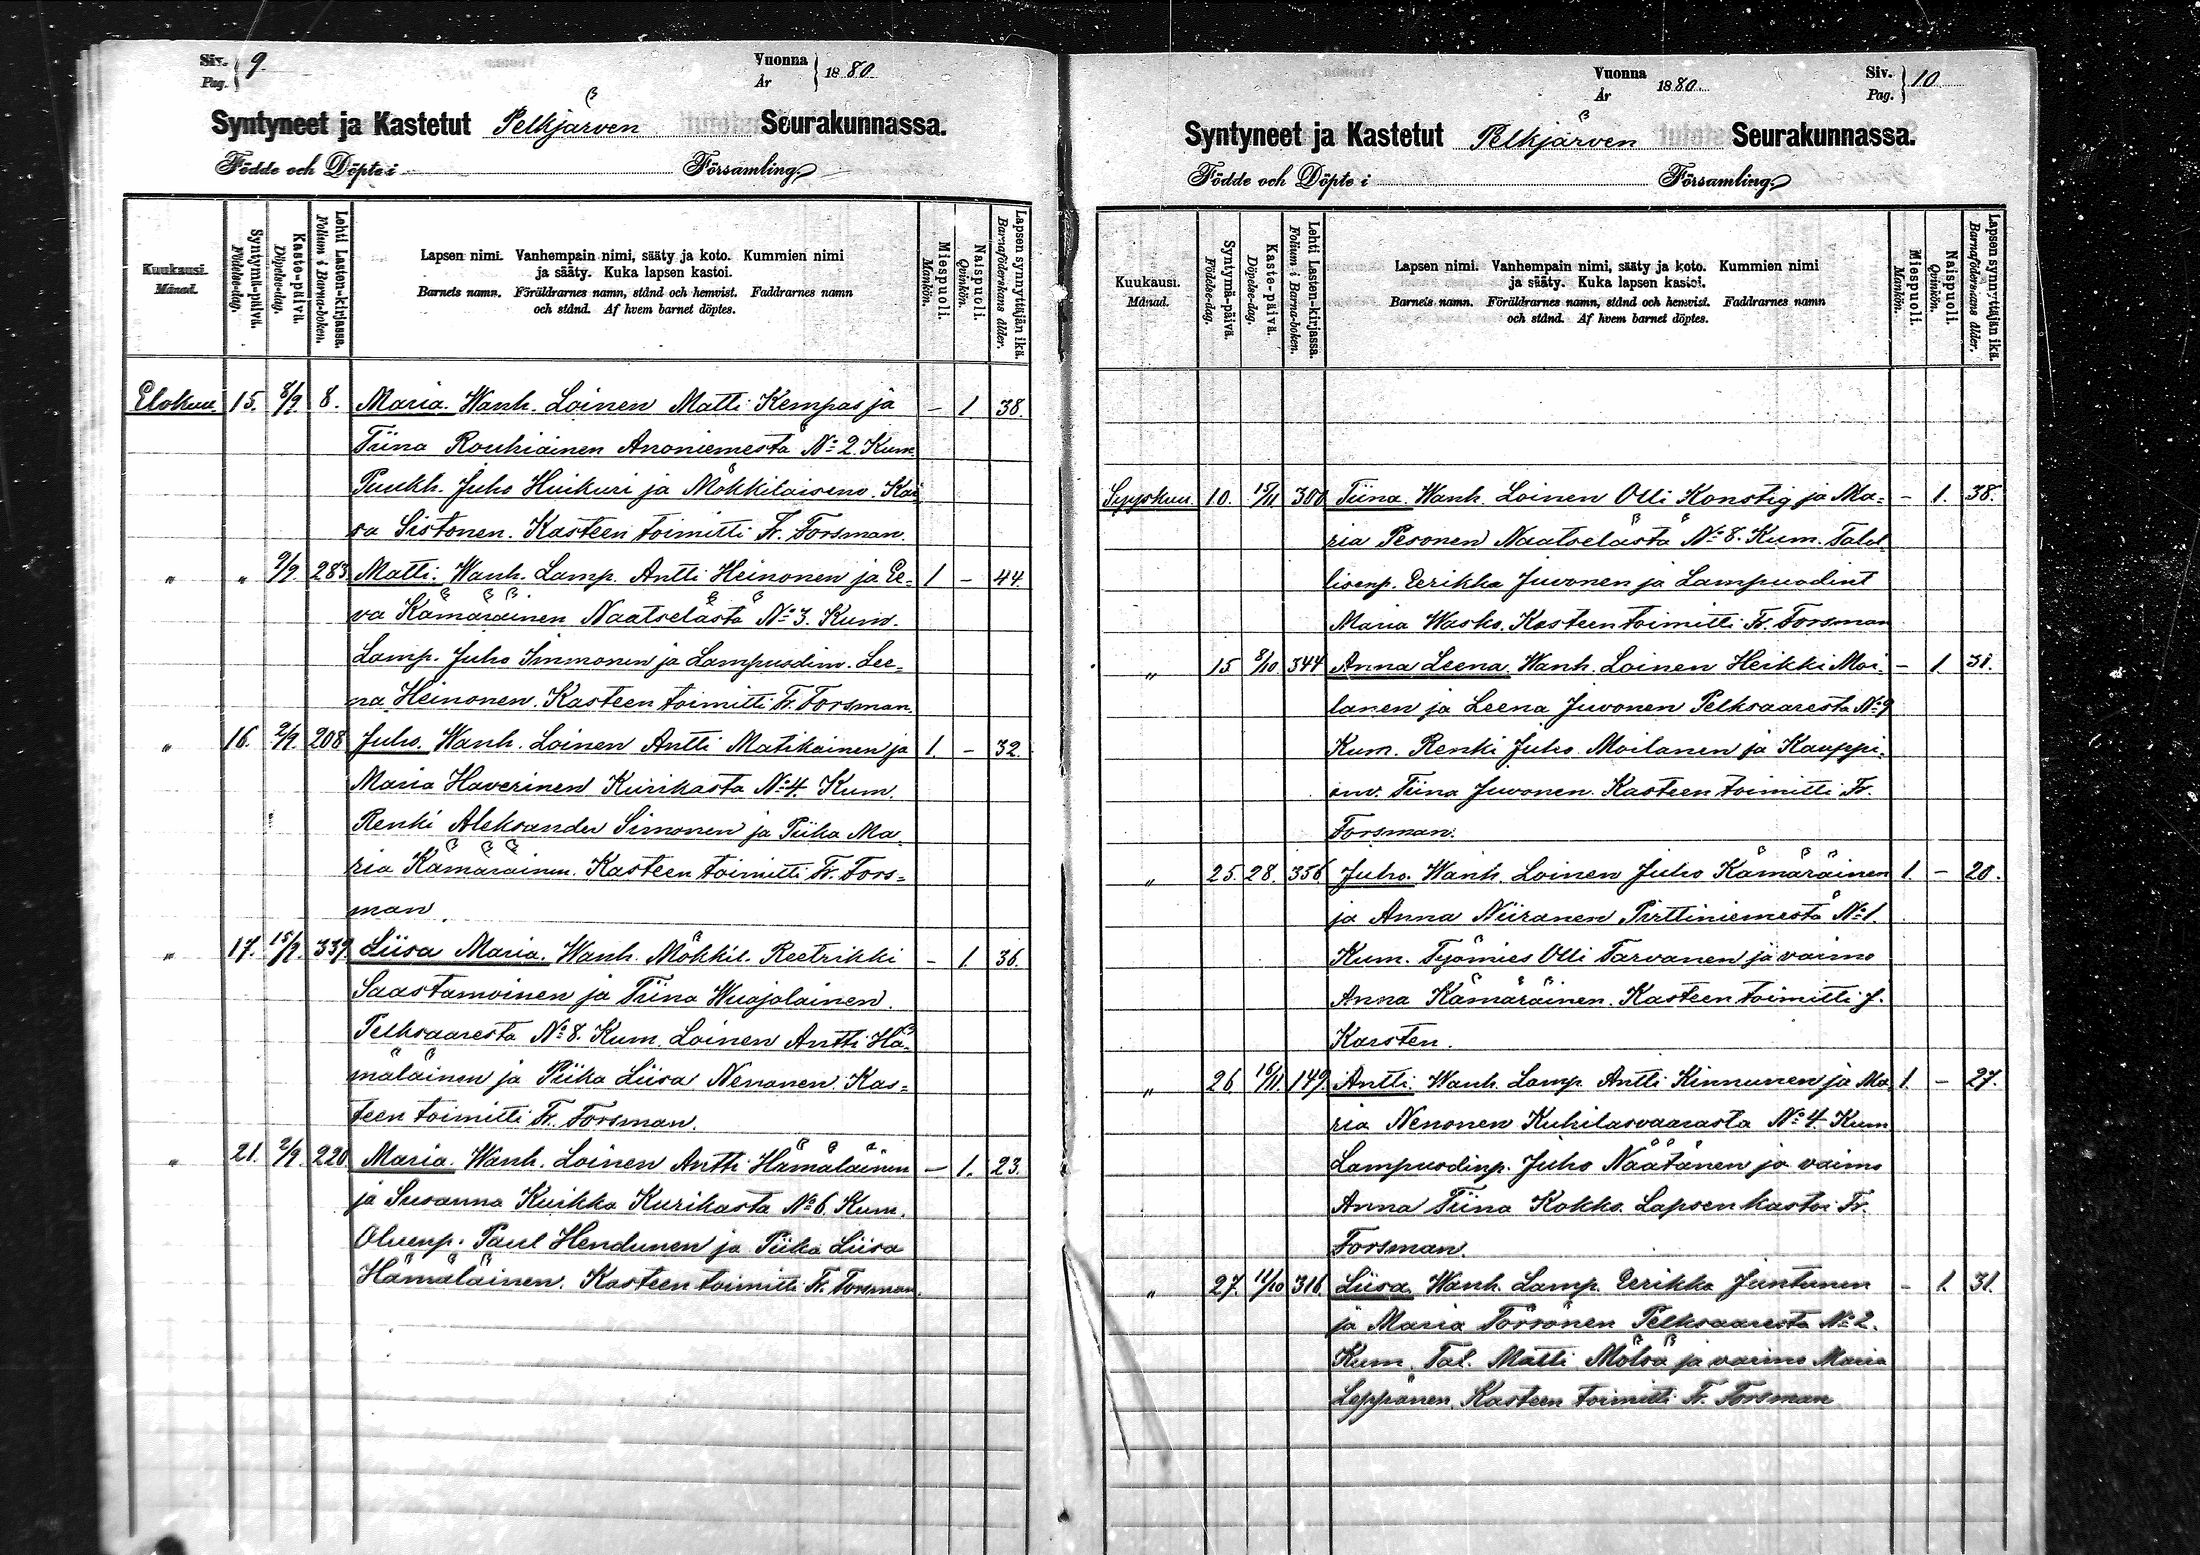 Siv. Pag. 9
Vuonna År 1880
Syntyneet ja Kastetut Pelkjärven Seurakunnassa.
Födde och Döpte i Församling
Kuukausi. Månad.
Syntymä-päivä. Födelse-dag.
Kaste-päivä. Döpelse-dag.
Lehti Lasten-kirjassa. Folium i Barna-boken.
Lapsen nimi. Vanhempain nimi, sääty ja koto. Kummien nimi
ja sääty. Kuka lapsen kastoi.
Barnets namn. Föräldrarnes namn, stånd och hemvist. Faddrarnes namn
och stånd. Af hvem barnet döptes.
Miespuoli. Mankön.
Naispuoli. Qvinkön.
Lapsen synnyttäjän ikä. Barnaföderskans ålder.
Elokuu 15. 8/9 8. Maria. Wanh. Loinen Matti Kempas ja — 1. 38.
Tiina Rouhiainen Anoniemestä No 2. Kum.
Puukh. Juho Huikuri ja Mökkiläisenv. Kai
sa Sistonen. Kasteen toimitti Fr. Forsman.
" " 9/9. 283 Matti. Wanh. Lamp. Antti Heinonen ja Ee- 1 — 44.
va Kämäräinen Naatselästä No 3. Kum.
Lamp. Juho Immonen ja Lampuodinv. Lee-
na Heinonen. Kasteen toimitti Fr. Forsman.
" 16. 2/9. 208 Juho. Wanh. Loinen Antti Matikainen ja 1. — 32.
Maria Haverinen Kurikasta No 4. Kum.
Renki Aleksander Simonen ja Piika Ma
ria Kämäräinen. Kasteen toimitti Fr. Fors-
man.
" 17. 15/9. 339 Liisa Maria. Wanh. Mökkil. Reetrikki — 1. 36.
Saastamoinen ja Tiina Wuojolainen.
Pelksaaresta No 8. Kum. Loinen Antti Hä-
mäläinen ja Piika Liisa Nenonen. Kas-
teen toimitti Fr. Forsman.
" 21. 2/9. 220 Maria. Wanh. Loinen Antti Hämäläinen — 1. 23.
ja Susanna Kuikka Kurikasta No 6. Kum.
Paul Hendunen ja Piika Liisa
Hämäläinen. Kasteen toimitti Fr. Forsman.
Vuonna År 1880
Siv. Pag. 10
Syntyneet ja Kastetut Pelkjärven Seurakunnassa.
Födde och Döpte i Församling
Kuukausi. Månad.
Syntymä-päivä. Födelse-dag.
Kaste-päivä. Döpelse-dag.
Lehti Lasten-kirjassa. Folium i Barna-boken.
Lapsen nimi. Vanhempain nimi, sääty ja koto. Kummien nimi
ja sääty. Kuka lapsen kastoi.
Barnets namn. Föräldrarnes namn, stånd och hemvist. Faddrarnes namn
och stånd. Af hvem barnet döptes.
Miespuoli. Mankön.
Naispuoli. Qvinkön.
Lapsen synnyttäjän ikä. Barnaföderskans ålder.
Syyskuu 10. 15/11 300 Tiina. Wanh. Loinen Olli Konstig ja Ma- — 1. 38.
ria Pesonen Naatselästä No 8. Kum. Talol
lisenp. Eerikka Juvonen ja Lampuodint
Maria Wasko. Kasteen toimitti Fr. Forsman
" 15 8/10 344 Anna Leena. Wanh. Loinen Heikki Moi- — 1. 31.
lanen ja Leena Juvonen Pelksaaresta No 9
Kum. Renki Juho Moilanen ja Kauppi-
anv. Tiina Juvonen. Kasteen toimitti Fr.
Forsman.
" 25. 28. 356 Juho. Wanh. Loinen Juho Kämäräinen 1. — 20.
ja Anna Niiranen Pirttiniemestä No 1.
Kum. Työmies Olli Tarvanen ja vaimo
Anna Kämäräinen. Kasteen toimitti J.
Karsten.
" 26 16/11 149. Antti. Wanh. Lamp. Antti Kinnunen ja Ma 1. — 27.
ria Nenonen Kuhilasvaarasta No 4 Kum
Lampuodinp. Juho Näätänen ja vaimo
Anna Tiina Kokko. Lapsen kastoi Fr.
Forsman.
" 27. 11/10 316 Liisa. Wanh. Lamp. Eerikka Juntunen — 1. 31.
ja Maria Törrönen Pelksaaresta No 2.
Kum. Tal. Matti Mölsä ja vaimo Maria
Leppänen. Kasteen toimitti Fr. Forsman